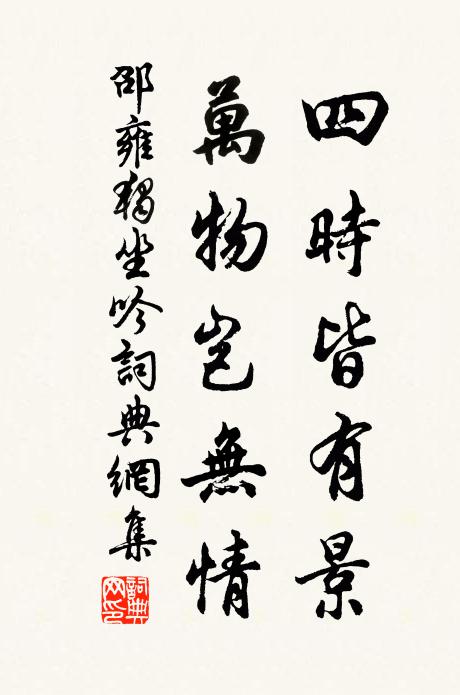 四時皆有景
萬物豈無情
邵雍獨坐吟詞典網集
詞典
網印